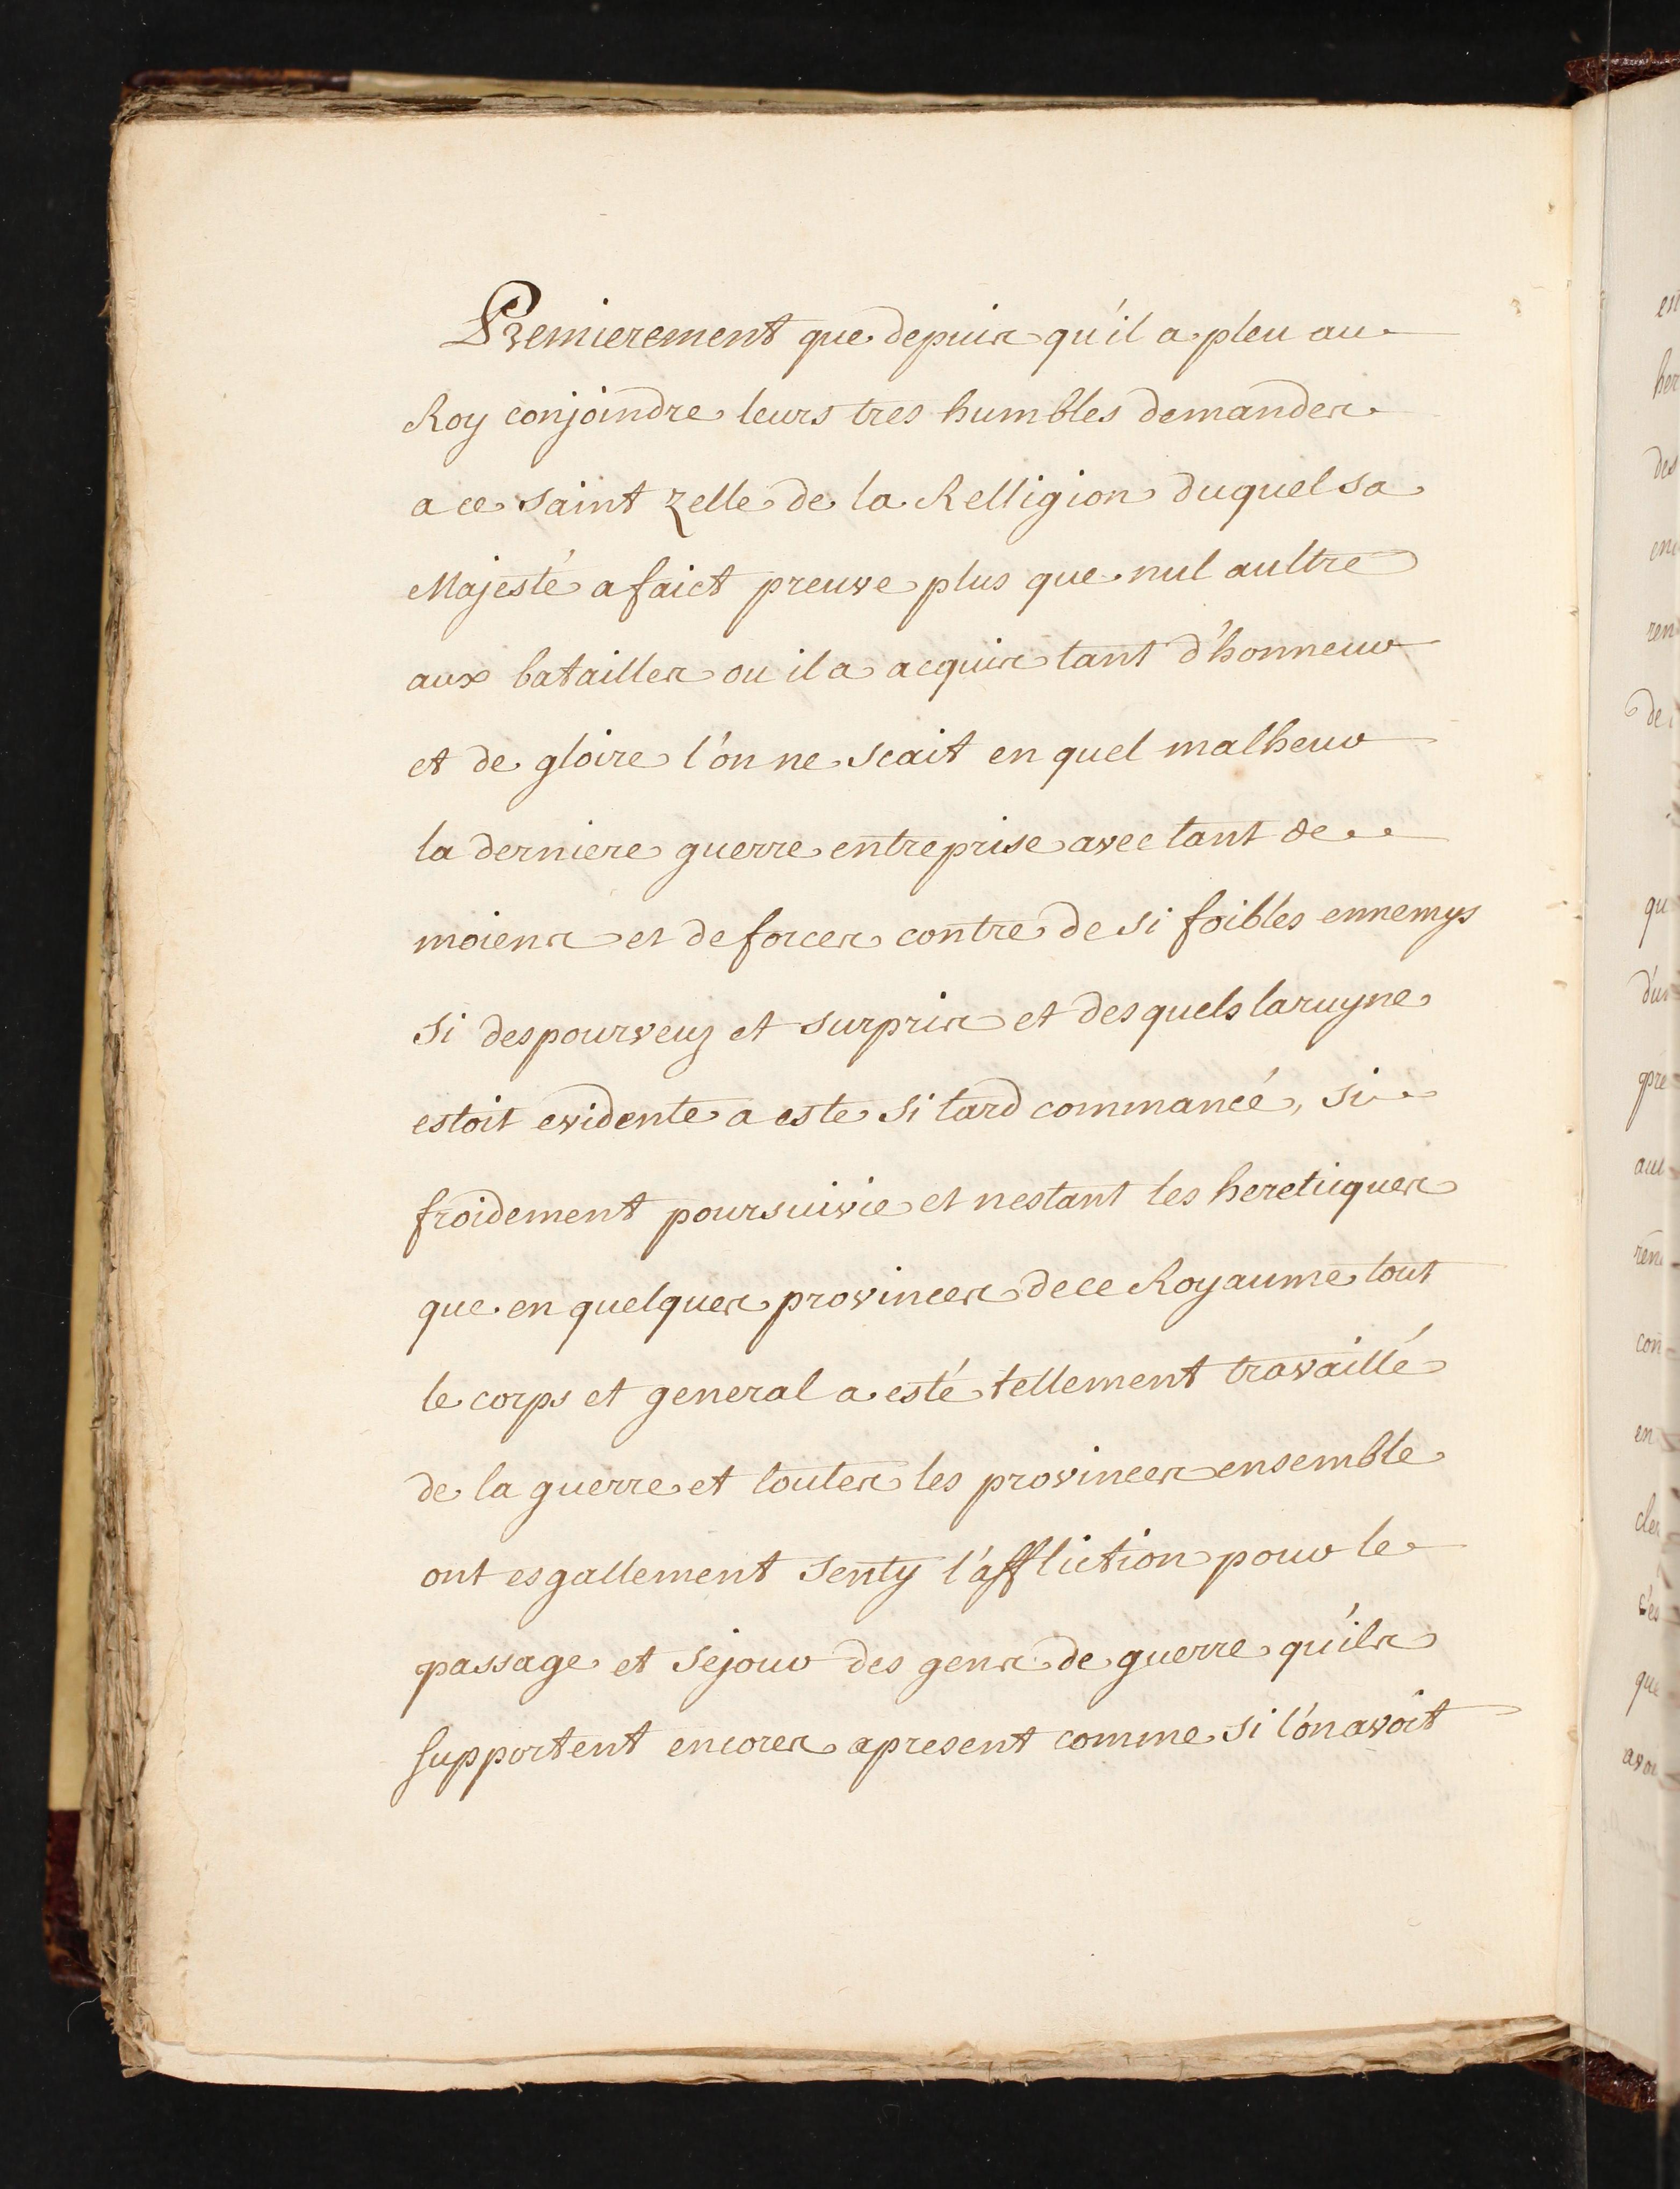 Premierement que depuis qu'il a pleu au
Roy conjoindre leurs tres humbles demandes
a ce saint zelle de la Relligion duquel sa
Majesté a faict preuve plus que nul aultre
aux batailles ou il a acquis tant d'honneur
et de gloire l'on ne scait en quel malheur
la derniere guerre entreprise avec tant de
moiens et de forces contre de si foibles ennemys
si despourveuz et surpris et desquels la ruyne
estoit evidente a este si tard commancé, si
froidement poursuivie et nestant les hereticques
que en quelques provinces de ce Royaume tout
le corps et general a esté tellement travaillé
de la guerre et toutes les provinces ensemble
ont esgallement senty l'affliction pour le
passage et sejour des gens de guerre qu'ils
supportent encores apresent comme si l'on avoit